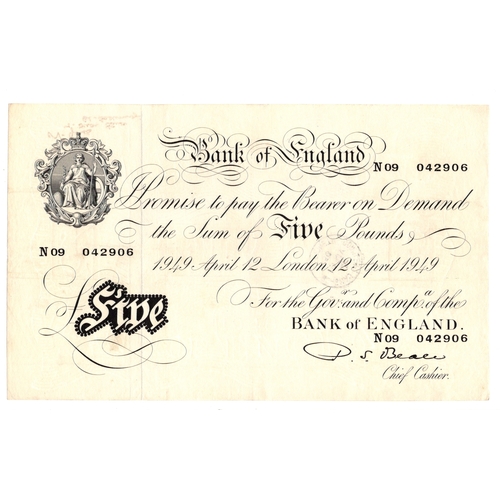 Bank of England
N09 042906
I Promise to pay the Bearer on Demand
the Sum of Five Pounds
N09 042906
1949 April 12 London 12 April 1949
£Five
For the Govr. and Compa. of the
BANK of ENGLAND.
N09 042906
P. S. Beale
Chief Cashier.